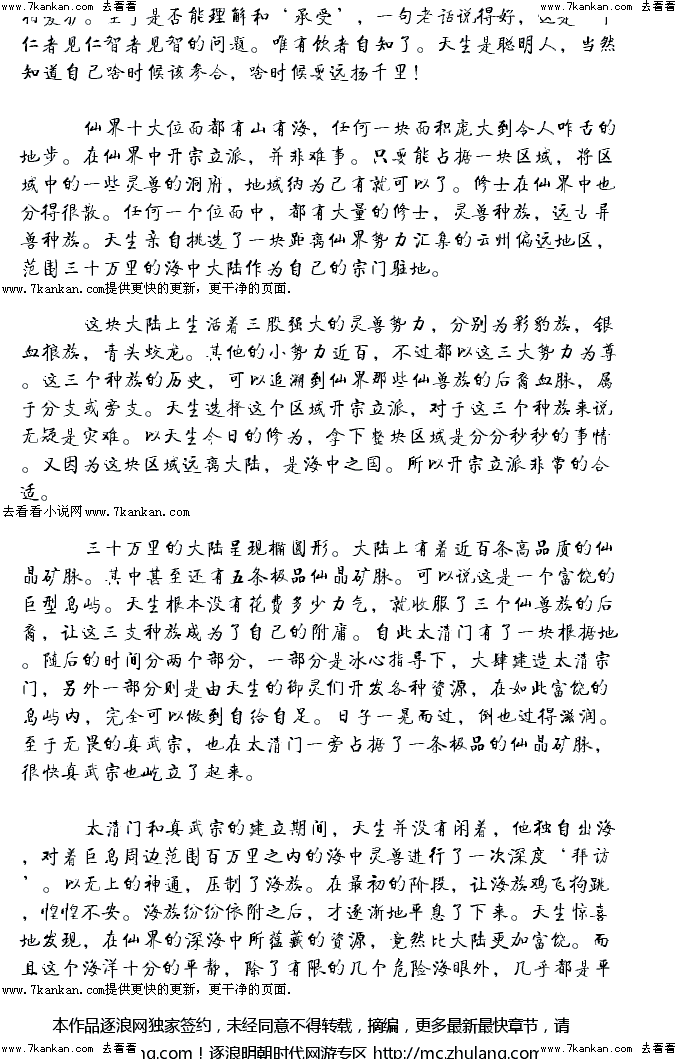 www.7kankan.com 去看看 www.7kankan.com 去看看 www.7kankan.com 去看看 www.7kankan.com 去看看
至于是否能理解和‘承受’，一句老话说得好，这是一个
仁者见仁智者见智的问题。唯有饮者自知了。天生是聪明人，当然
知道自己啥时候该参合，啥时候要远扬千里！
仙界十大位面都有山有海，任何一块面积庞大到令人咋舌的
地步。在仙界中开宗立派，并非难事。只要能占据一块区域，将区
域中的一些灵兽的洞府，地域纳为己有就可以了。修士在仙界中也
分得很散。任何一个位面中，都有大量的修士，灵兽种族，远古异
兽种族。天生亲自挑选了一块距离仙界势力汇集的云州偏远地区，
范围三十万里的海中大陆作为自己的宗门驻地。
www.7kankan.com提供更快的更新，更干净的页面.
这块大陆上生活着三股强大的灵兽势力，分别为彩豹族，银
血狼族，青头蛟龙。其他的小势力近百，不过都以这三大势力为尊
。这三个种族的历史，可以追溯到仙界那些仙兽族的后裔血脉，属
于分支或旁支。天生选择这个区域开宗立派，对于这三个种族来说
无疑是灾难。以天生今日的修为，拿下整块区域是分分秒秒的事情
。又因为这块区域远离大陆，是海中之国。所以开宗立派非常的合
适。
去看看小说网www.7kankan.com
三十万里的大陆呈现椭圆形。大陆上有着近百条高品质的仙
晶矿脉。其中甚至还有五条极品仙晶矿脉。可以说这是一个富饶的
巨型岛屿。天生根本没有花费多少力气，就收服了三个仙兽族的后
裔，让这三支种族成为了自己的附庸。自此太清门有了一块根据地
。随后的时间分两个部分，一部分是冰心指导下，大肆建造太清宗
门，另外一部分则是由天生的御灵们开发各种资源，在如此富饶的
岛屿内，完全可以做到自给自足。日子一晃而过，倒也过得滋润。
至于无畏的真武宗，也在太清门一旁占据了一条极品的仙晶矿脉，
很快真武宗也屹立了起来。
太清门和真武宗的建立期间，天生并没有闲着，他独自出海
，对着巨岛周边范围百万里之内的海中灵兽进行了一次深度‘拜访
’。以无上的神通，压制了海族。在最初的阶段，让海族鸡飞狗跳
，惶惶不安。海族纷纷依附之后，才逐渐地平息了下来。天生惊喜
地发现，在仙界的深海中所蕴藏的资源，竟然比大陆更加富饶。而
且这个海洋十分的平静，除了有限的几个危险海眼外，几乎都是平
www.7kankan.com提供更快的更新，更干净的页面.
本作品逐浪网独家签约，未经同意不得转载，摘编，更多最新最快章节，请
www.7kankan.com 去看看 www.7kankan.com 去看看 www.7kankan.com 去看看 www.7kankan.com 去看看
ng.com！逐浪明朝时代网游专区 http://mc.zhulang.com